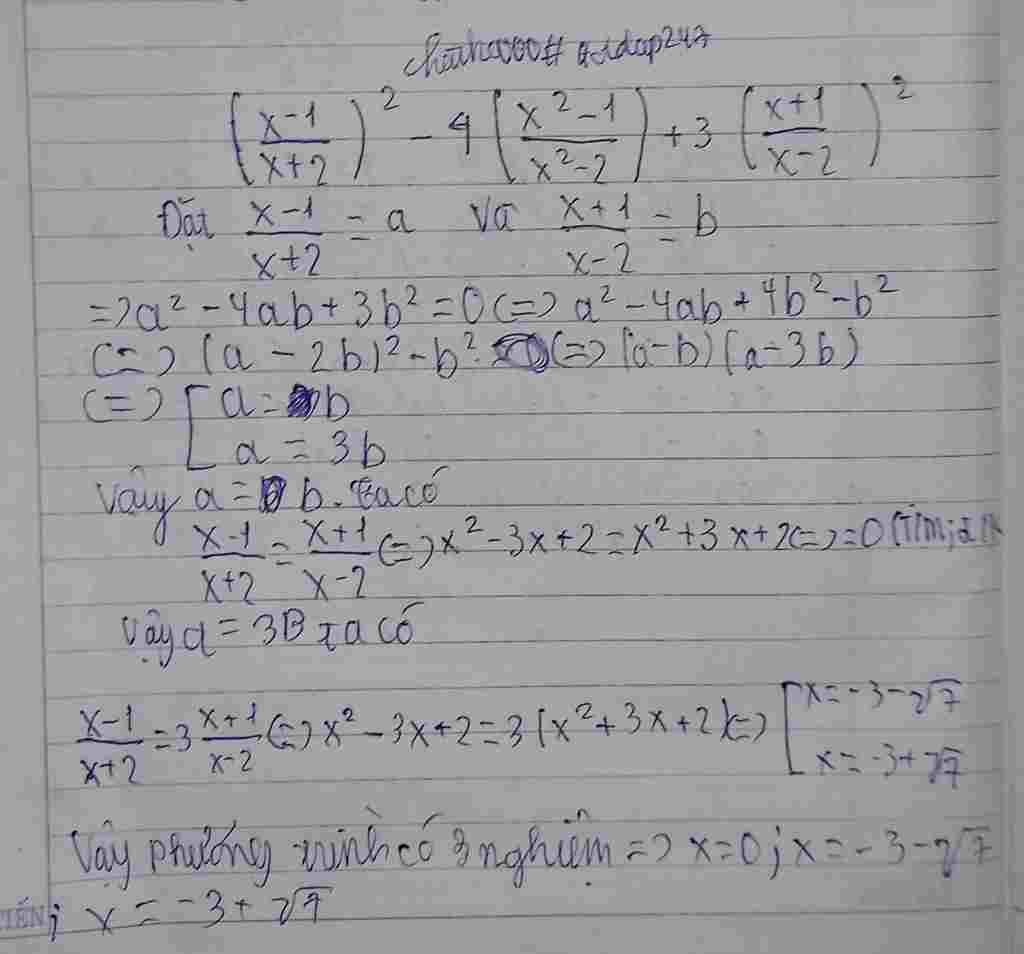 (x-1/x+2)² - 4(x²-1/x²-2) + 3(x+1/x-2)²
Đặt x-1/x+2 = a và x+1/x-2 = b
=> a² - 4ab + 3b² = 0 (=) a² - 4ab + 4b² - b²
(=) (a - 2b)² - b² (=) (a-b)(a-3b)
(=) [ a = b
a = 3b
Vậy a = b. ta có
x-1/x+2 = x+1/x-2 (=) x² - 3x + 2 = x² + 3x + 2 (=) = 0 (T/m;
Vậy a = 3B ta có
x-1/x+2 = 3 x+1/x-2 (=) x² - 3x + 2 = 3(x² + 3x + 2) (=) [ x = -3 - √7
x = -3 + √7
Vậy phương trình có 3 nghiệm => x = 0; x = -3 - √7
; x = -3 + √7